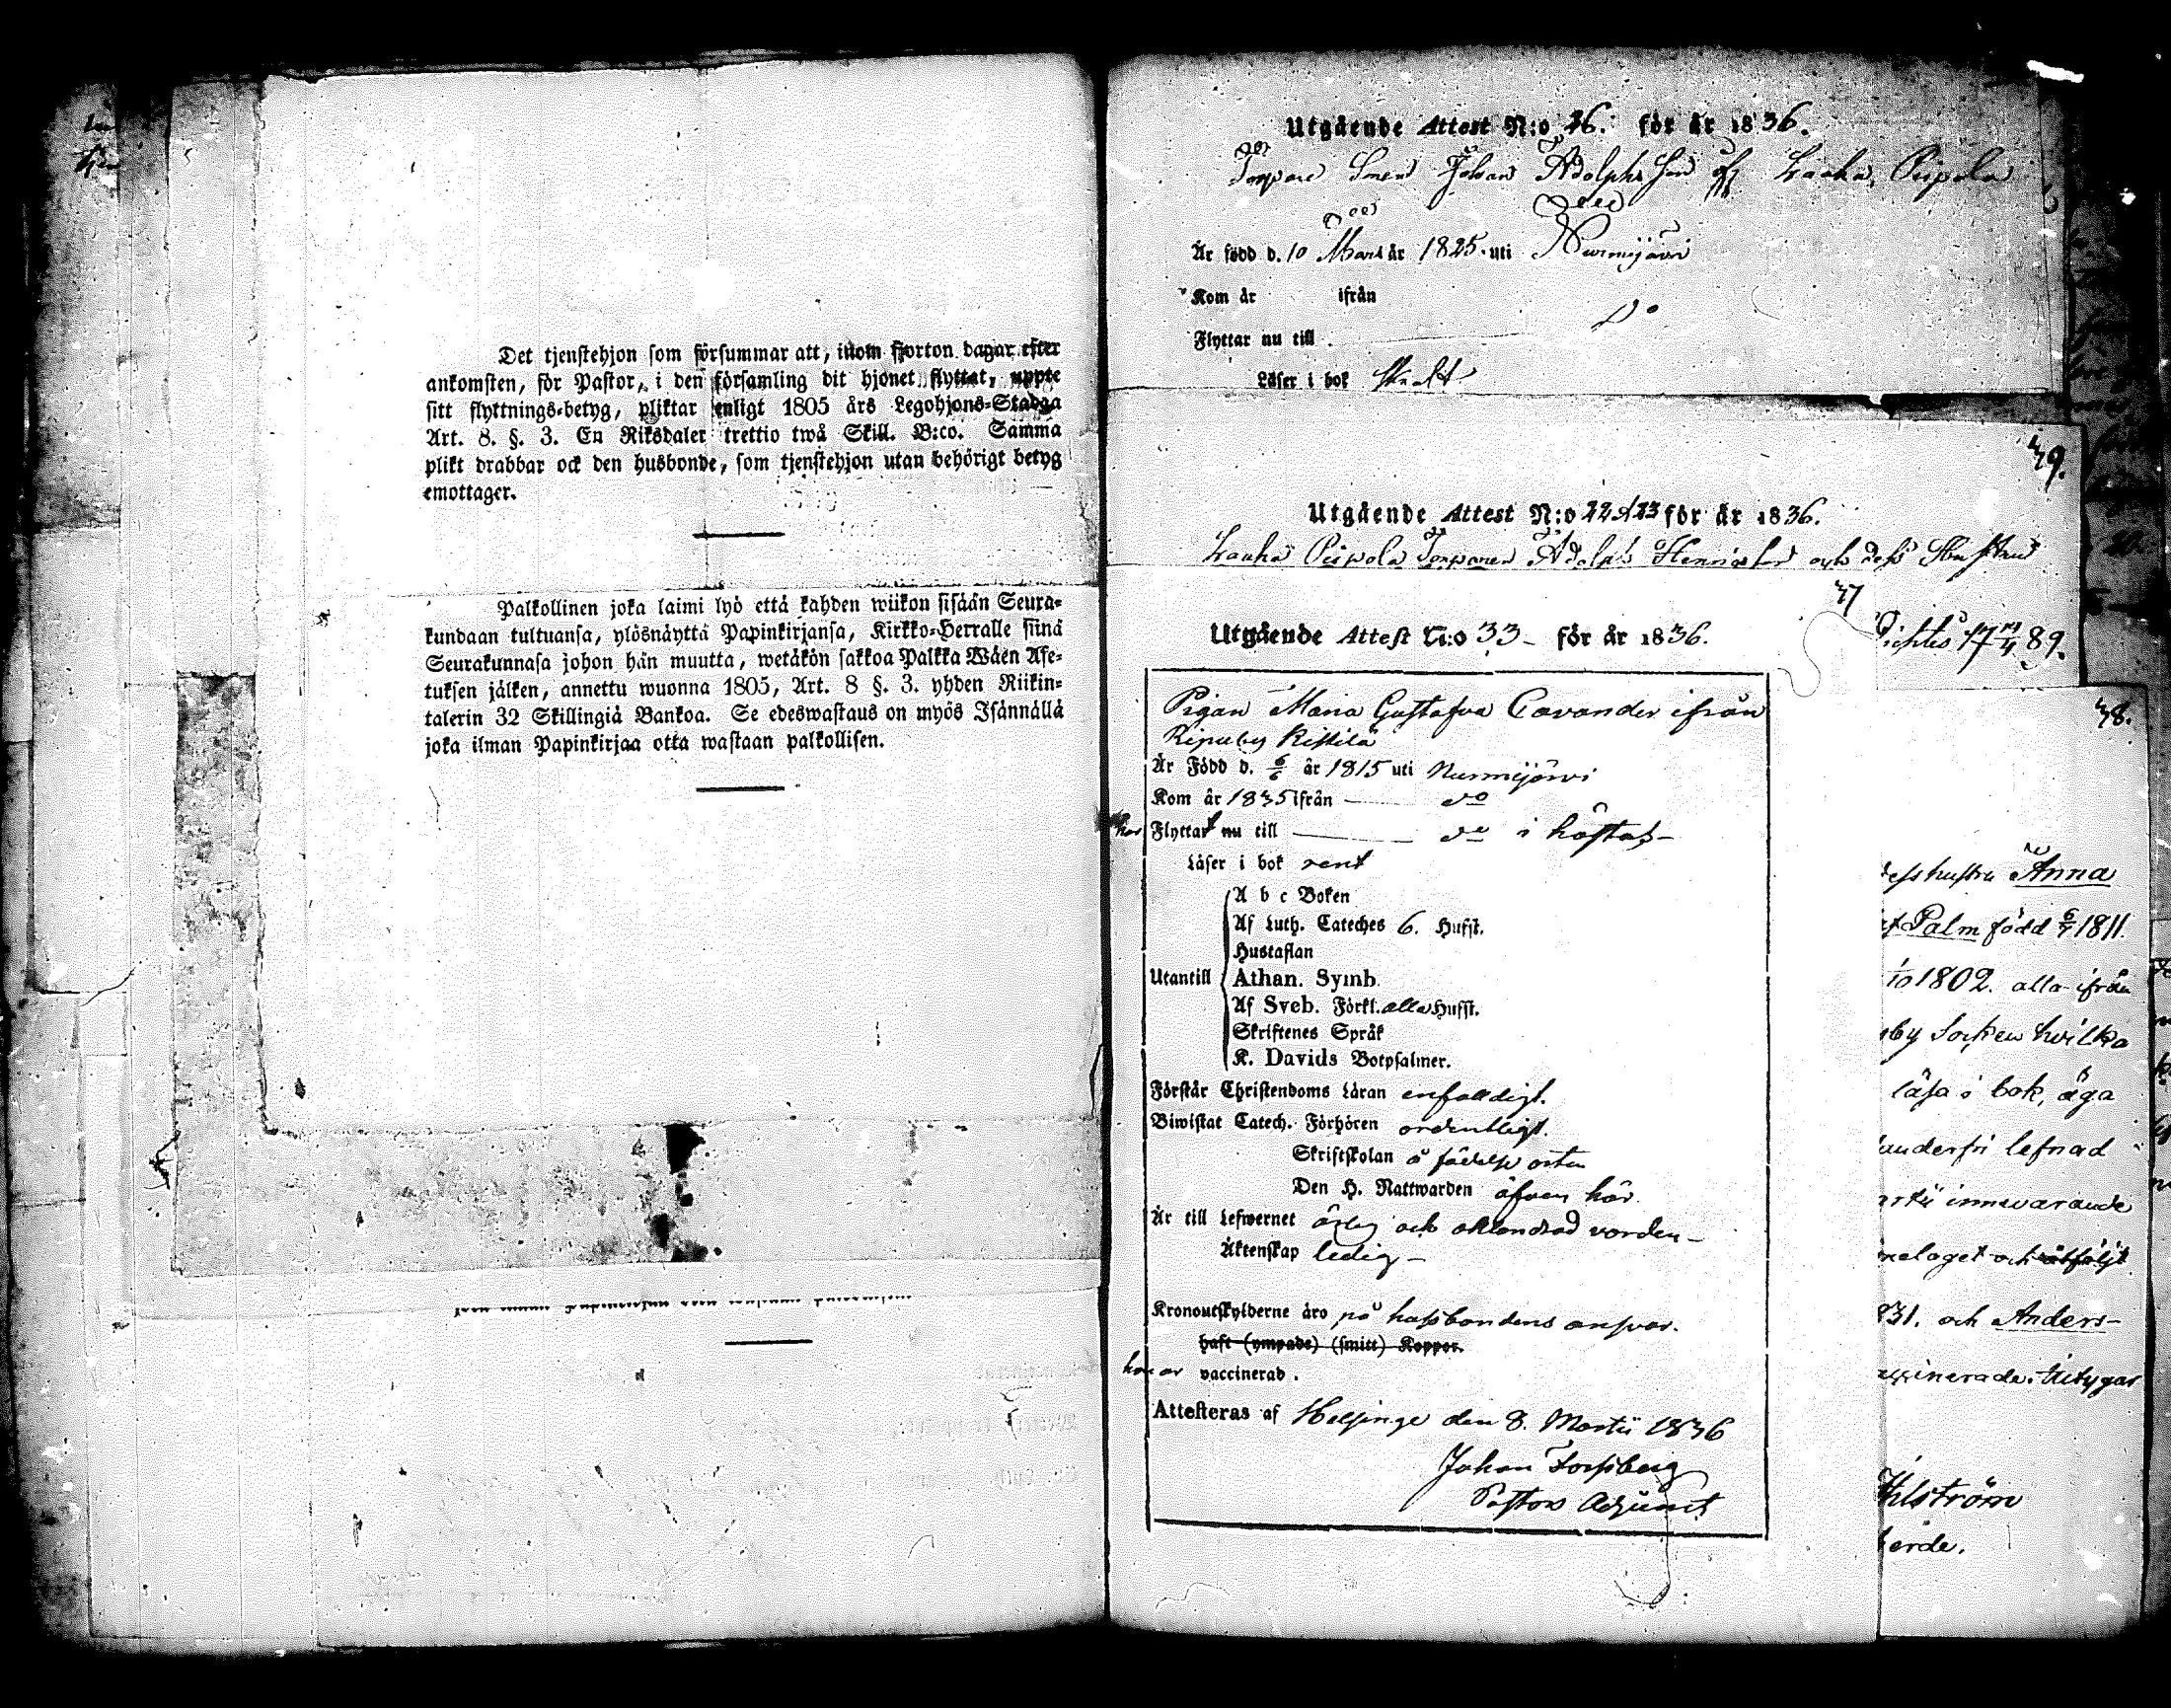 Det tjenstehjon som försummar att, inom fjorton dagar efter
ankomsten, för Pastor, i den församling dit hjonet flyttat, uppte
sitt flyttnings-betyg, pliktar enligt 1805 års Legohjons-Stadga
Art. 8. §. 3. En Riksdaler trettio twå Skill. B:co. Samma
plikt drabbar ock den husbonde, som tjenstehjon utan behörigt betyg
emottager.
Palkollinen joka laimi lyö että kahden wiikon sisään Seura-
kundaan tultuansa, ylösnäyttä Papinkirjansa, Kirkko-Herralle siinä
Seurakunnasa johon hän muutta, wetäkön sakkoa Palkka Wäen Ase-
tuksen jälken, annettu wuonna 1805, Art. 8 §. 3. yhden Riikin-
talerin 32 Skillingiä Bankoa. Se edeswastaus on myös Isännällä
joka ilman Papinkirjaa otta wastaan palkollisen.
Utgående Attest N:o 26. för år 1836.
Johan Adolphsson
Är född d. 10 Mars år 1825. uti Nurmijärvi
Kom år ifrån
Flyttar nu till do
Läser i bok
39.
Utgående Attest N:o 22 & 23 för år 1836.
Adolph
37
Utgående Attest N:o 33 för år 1836.
89.
Pigan Maria Gustafva Cavander ifrån
Ripuby Kittilä
Är Född d. 6/6 år 1815 uti Nurmijärvi
Kom år 1835 ifrån do
har Flyttat nu till do i höstas
Läser i bok rent
A b c Boken
Af Luth. Cateches 6. Hufst.
Hustaflan
Utantill Athan. Symb.
Af Sveb. Förkl. alla Hufst.
Skriftenes Språk
K. Davids Botpsalmer.
Förstår Christendoms Läran enfaldigt.
Biwistat Catech. Förhören ordentligt.
Skriftskolan å födelse orten
Den H. Nattwarden äfven här
Är till Lefwernet ärlig och oklandrad vorden
Äktenskap ledig
Kronoutskylderne äro på hussbondens ansvar.
haft (ympade) (smitt) Koppor.
hon är vaccinerad.
Attesteras af Helsinge den 8. Martii 1836
Johan Forssberg
Pastors Adjunct
38.
dess hustru Anna
Palm född 6/7 1811.
1802. alla ifrån
by Socken hvilka
läsa i bok, äga
lefnad
innevarande
och åtföljt
831. och Anders-
erde.